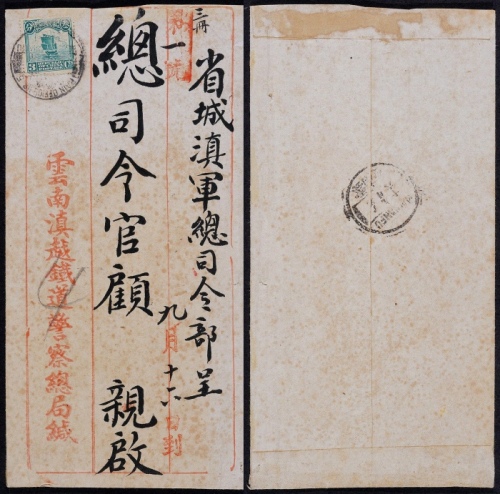 三冊
一
省城滇軍總司令部呈
總司令官顧 親啟
九月十六日判
雲南滇越鐵道警察總局緘